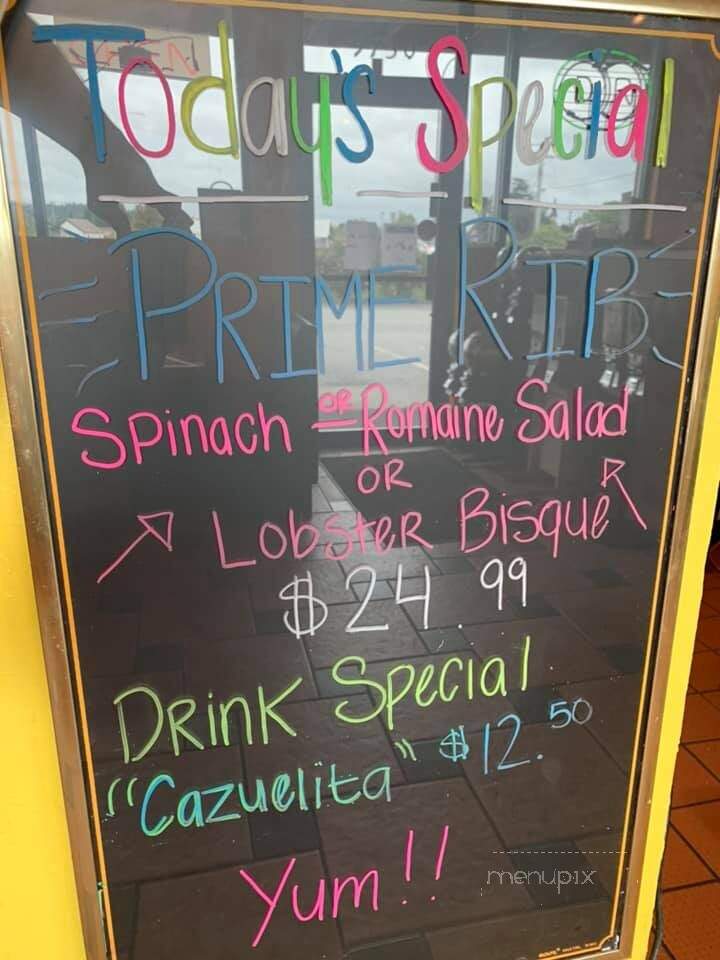 Today's Special
PRIME RIB
Spinach OR Romaine Salad
OR
Lobster Bisque
$24.99
Drink Special
"Cazuelita" $12.50
Yum!!
menupix